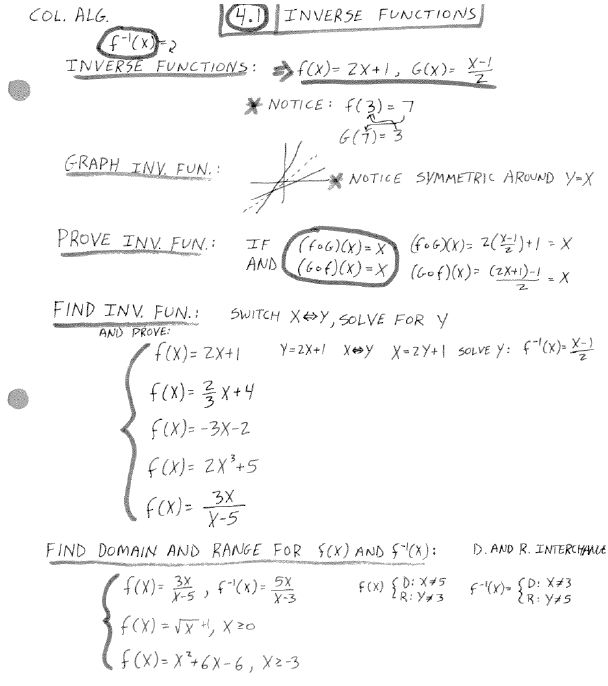 COL. ALG. 4.1 INVERSE FUNCTIONS
f⁻¹(x)=2
INVERSE FUNCTIONS: ⇒ f(x)= 2x+1, G(x)= (x-1)/2
* NOTICE: f(3)=7
G(7)=3
GRAPH INV. FUN.: * NOTICE SYMMETRIC AROUND Y=X
PROVE INV. FUN.: IF (f∘G)(x)=X (f∘G)(x)= 2((x-1)/2)+1 = X
AND (G∘f)(x)=X (G∘f)(x)= ((2x+1)-1)/2 = X
FIND INV. FUN.: SWITCH X⇔Y, SOLVE FOR Y
AND PROVE:
f(x)= 2x+1 Y=2x+1 X⇔Y X=2Y+1 SOLVE Y: f⁻¹(x)= (x-1)/2
f(x)= 2/3 x+4
f(x)= -3x-2
f(x)= 2x³+5
f(x)= 3x/(x-5)
FIND DOMAIN AND RANGE FOR f(x) AND f⁻¹(x): D. AND R. INTERCHANGE
f(x)= 3x/(x-5), f⁻¹(x)= 5x/(x-3) f(x) { D: X≠5 R: Y≠3 f⁻¹(x)= { D: X≠3 R: Y≠5
f(x)= √x +1, X≥0
f(x)= x²+6x-6, X≥-3